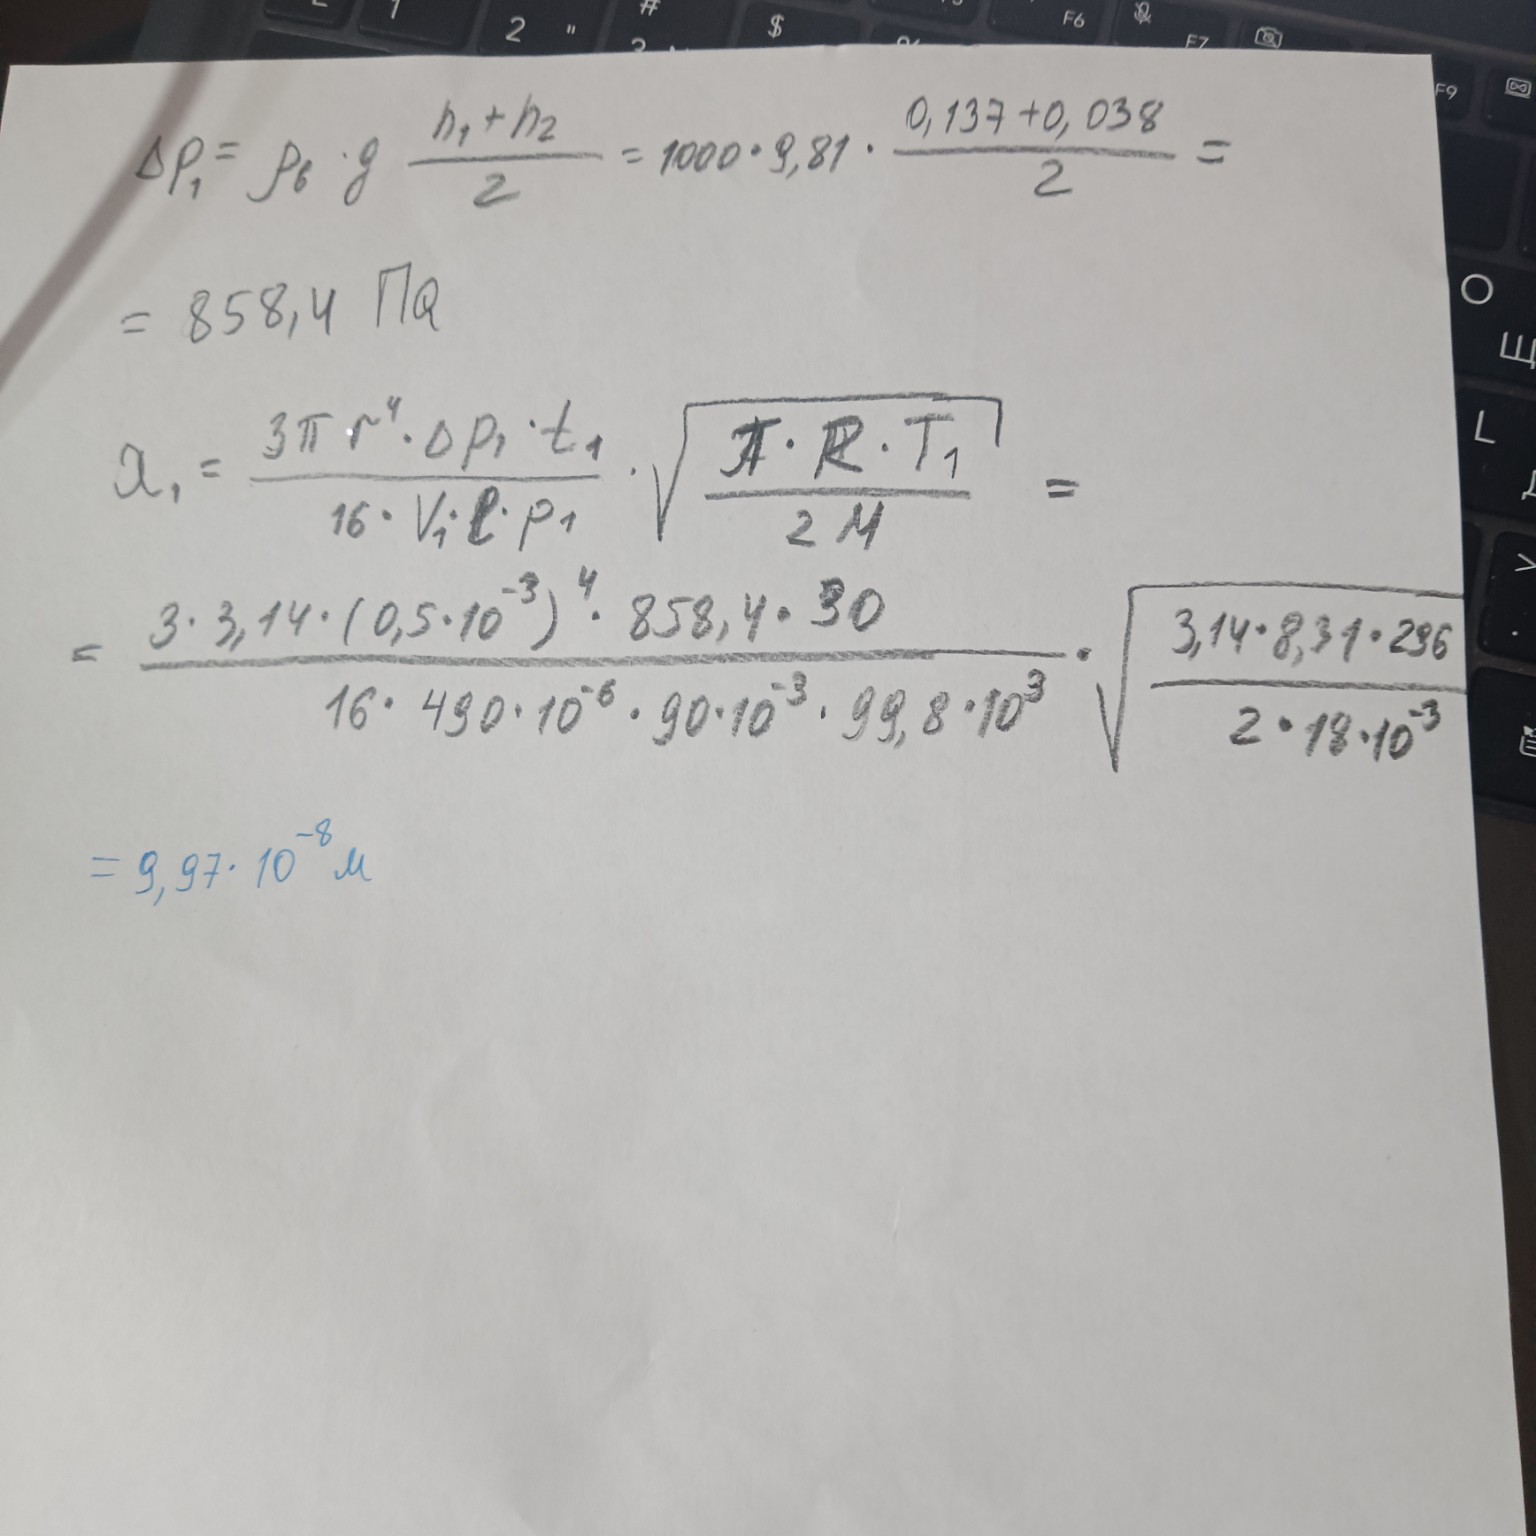 2 "
#
$
F6
F7
F9
О
Щ
L
Δp₁ = ρв · g (h₁ + h₂)/2 = 1000 · 9,81 · (0,137 + 0,038)/2 =
= 858,4 Па
λ₁ = (3π r⁴ · Δp₁ · t₁)/(16 · V₁ · ℓ · p₁) · √((π · R · T₁)/(2 M)) =
= (3 · 3,14 · (0,5 · 10⁻³)⁴ · 858,4 · 30)/(16 · 490 · 10⁻⁶ · 90 · 10⁻³ · 99,8 · 10³) · √((3,14 · 8,31 · 296)/(2 · 18 · 10⁻³))
= 9,97 · 10⁻⁸ м